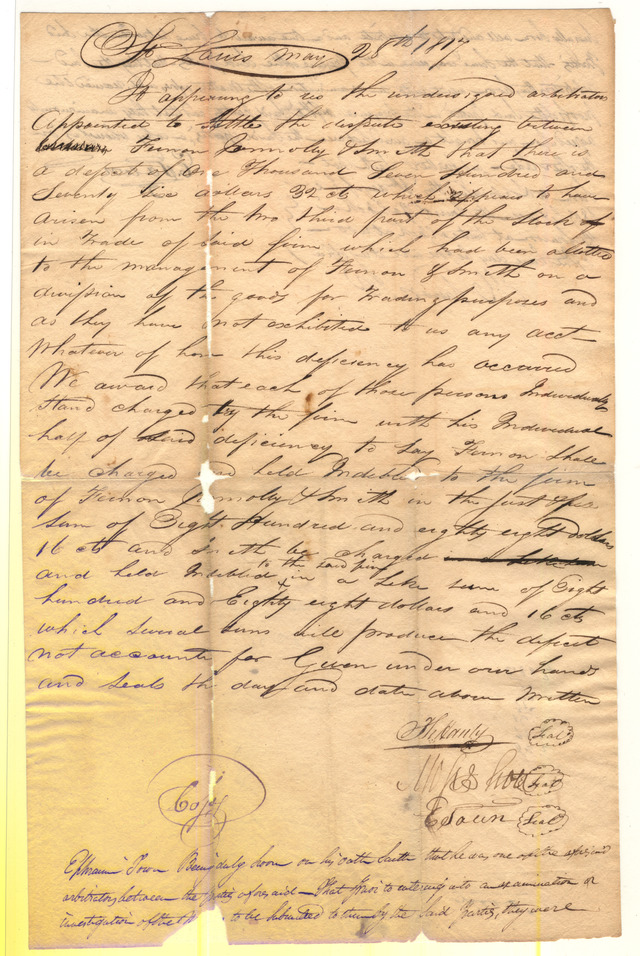 St Louis May 28th 1817
It appearing to us the undersigned arbitrators
appointed to settle the dispute existing between
Fernon Connolly & Smith that there is
a deficit of One Thousand Seven Hundred and
Seventy Six dollars 32 cts which appears to have
arisen from the two third part of the Stock
in Trade of Said firm which had been alloted
to the management of Fernon & Smith on a
division of the goods for Trading purposes and
as they have not exhibited to us any acct
Whatever of how this deficiency has occurred
We award that each of those persons Individually
Stand charged by the firm with his Individual
half of deficiency to Say Fernon Shall
be charged and held Indebted to the firm
of Fernon Connolly & Smith in the Just
Sum of Eight Hundred and eighty eight Dollars
16 cts and Smith be charged
to the said firm
and held Indebted in a Like sum of Eight
hundred and Eighty eight dollars and 16 cts
which several sums will produce the deficit
not accounted for Given under our hands
and Seals the day and date above Written
Seal
Seal
E Town Seal
Copy
Ephraim Town Being duly sworn on his oath Saith that he was one of the aforesaid
arbitrators between the parties aforesaid – That prior to entering into an examination or
investigation of the to be Submitted to them by the Said parties, they were